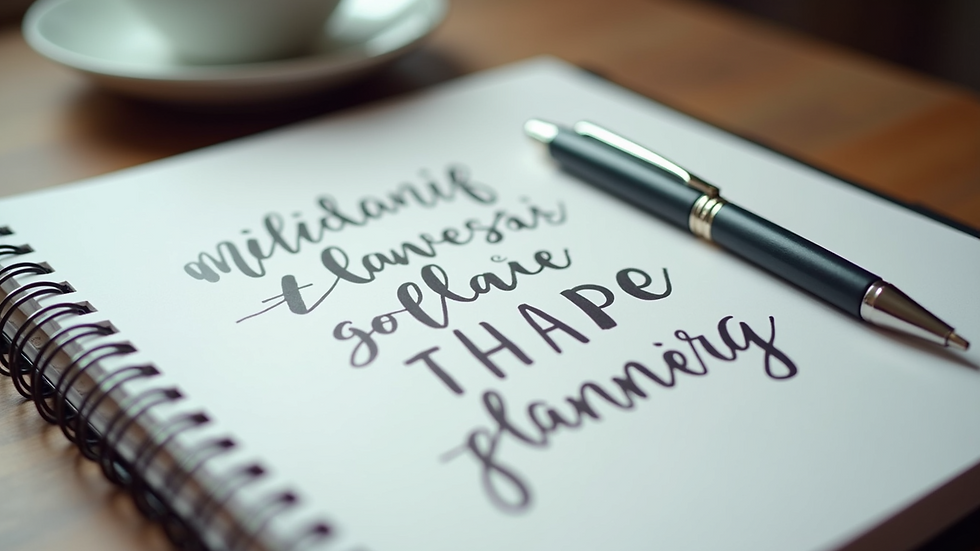 milidanif
t lawesai
gollaie
THAPe
glannerg